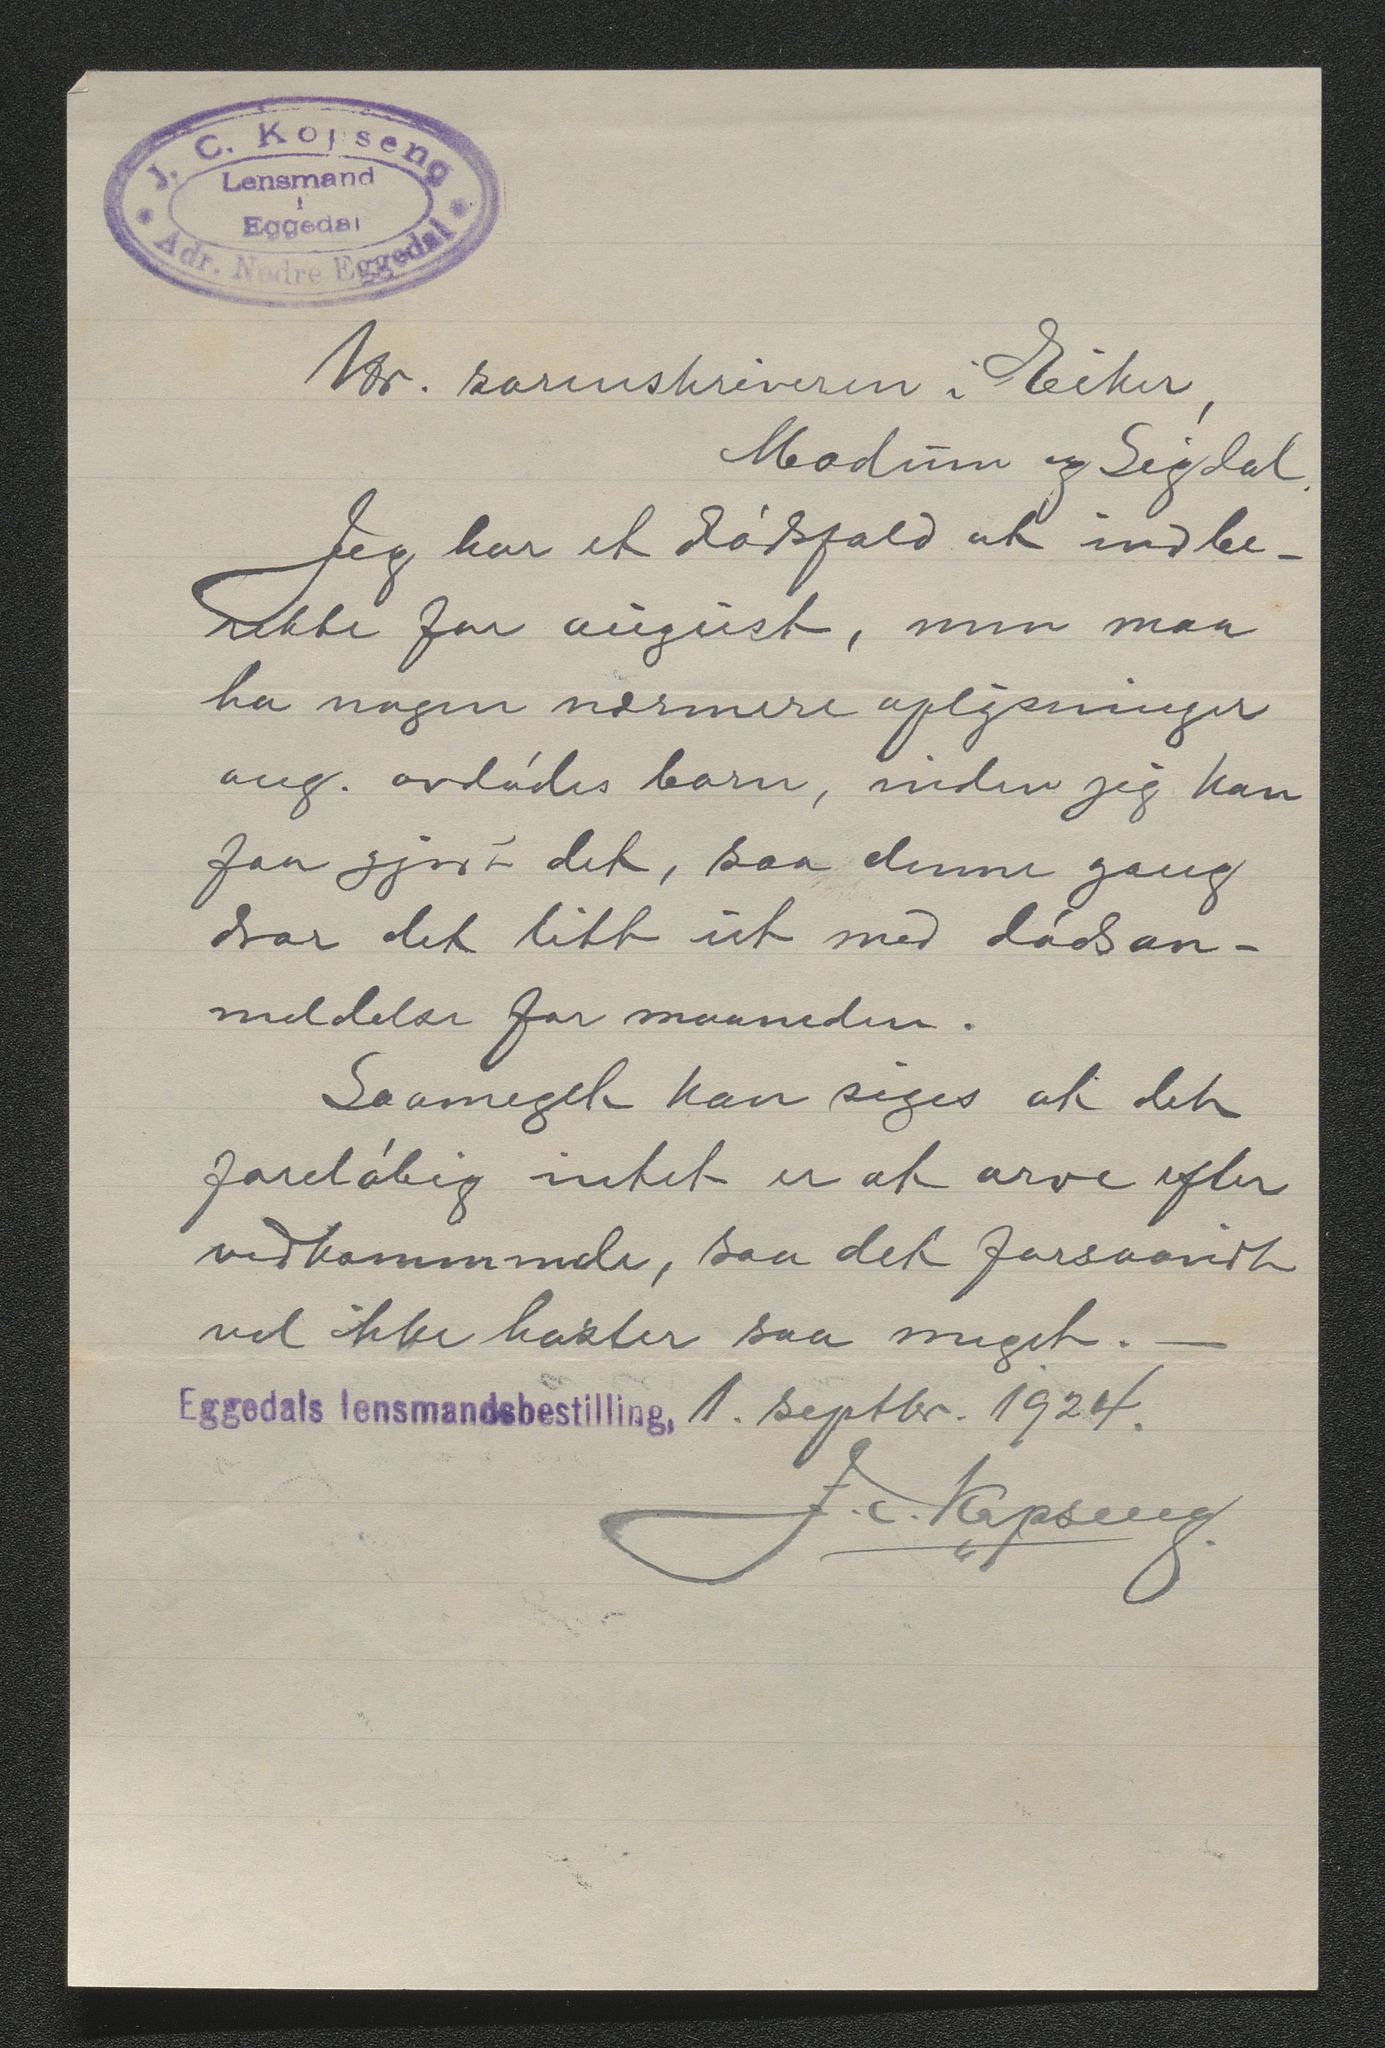 J. C. Kopseng
Lensmand
i
Eggedal
Adr. Nedre Eggedal
Hr. sorenskriveren i Eiker,
Modum og Sigdal.
Jeg har et dødsfald at indbe-
rette for august, men maa
ha nogen nærmere oplysninger
ang. avdødes barn, inden jeg kan
faa gjort det, saa denne gang
drar det litt ut med dødsan-
meldelse for maaneden.
Saameget kan siges at det
foreløbig intet er at arve efter
vedkommende, saa det forsaavidt
vel ikke haster saa meget. —
Eggedals lensmandsbestilling, 1. septbr. 1924.
J. C. Kopseng.